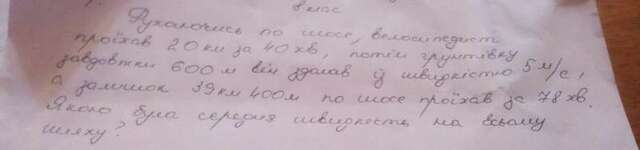 8 клас
Рухаючись по шосе, велосипедист
проїхав 20 км за 40 хв, потім ґрунтівку
завдовжки 600 м він здолав зі швидкістю 5 м/с,
а залишок 39 км 400 м по шосе проїхав за 78 хв.
Якою була середня швидкість на всьому
шляху?